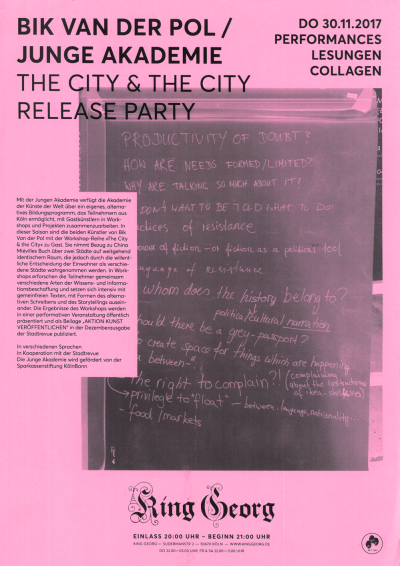 BIK VAN DER POL /
JUNGE AKADEMIE
THE CITY & THE CITY
RELEASE PARTY
DO 30.11.2017
PERFORMANCES
LESUNGEN
COLLAGEN
PRODUCTIVITY OF DOUBT?
HOW ARE NEEDS FORMED/LIMITED?
WHY ARE TALKING SO MUCH ABOUT IT!
DON'T WANT TO BE TOLD WHAT TO DO!
ctices of resistance
of fiction - or fiction as a political tool
nguage of Resistance
whom does the history belong?
political/cultural narration
hould there be a grey-passport?
o create space for things which are happening
between-"
The right to complain?!
(complaining
about the
of
→ privilege to "float" – between language, nationality...
- food/markets
Mit der Jungen Akademie verfügt die Akademie
der Künste der Welt über ein eigenes, alterna-
tives Bildungsprogramm, das Teilnehmern aus
Köln ermöglicht, mit Gastkünstlern in Work-
shops und Projekten zusammenzuarbeiten. In
dieser Saison sind die beiden Künstler von Bik
Van der Pol mit der Workshop-Reihe »The City
& the City« zu Gast. Sie nimmt Bezug zu China
Miévilles Buch über zwei Städte auf weitgehend
identischem Raum, die jedoch durch die willent-
liche Entscheidung der Einwohner als verschie-
dene Städte wahrgenommen werden. In Work-
shops erforschen die Teilnehmer gemeinsam
verschiedene Arten der Wissens- und Informa-
tionsbeschaffung und setzen sich intensiv mit
gemeinfreien Texten, mit Formen des alterna-
tiven Schreibens und des Storytellings ausein-
ander. Die Ergebnisse des Workshops werden
in einer performativen Veranstaltung öffentlich
präsentiert und als Beilage „AKTION KUNST
VERÖFFENTLICHEN" in der Dezemberausgabe
der Stadtrevue publiziert.
In verschiedenen Sprachen
In Kooperation mit der Stadtrevue
Die Junge Akademie wird gefördert von der
Sparkassenstiftung KölnBonn
King Georg
EINLASS 20:00 UHR – BEGINN 21:00 UHR
KING GEORG — SUDERMANSTR 2 — 50670 KÖLN — WWW.KINGGEORG.DE